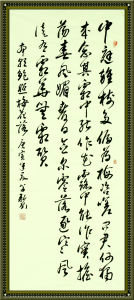 中庭雜樹多偏為梅咨嗟問君何獨
然念其霜中能作花露中能作實搖
蕩春風媚春日念爾零落逐寒風
徒有霜華無霜質
南朝鮑照梅花落 庚寅年